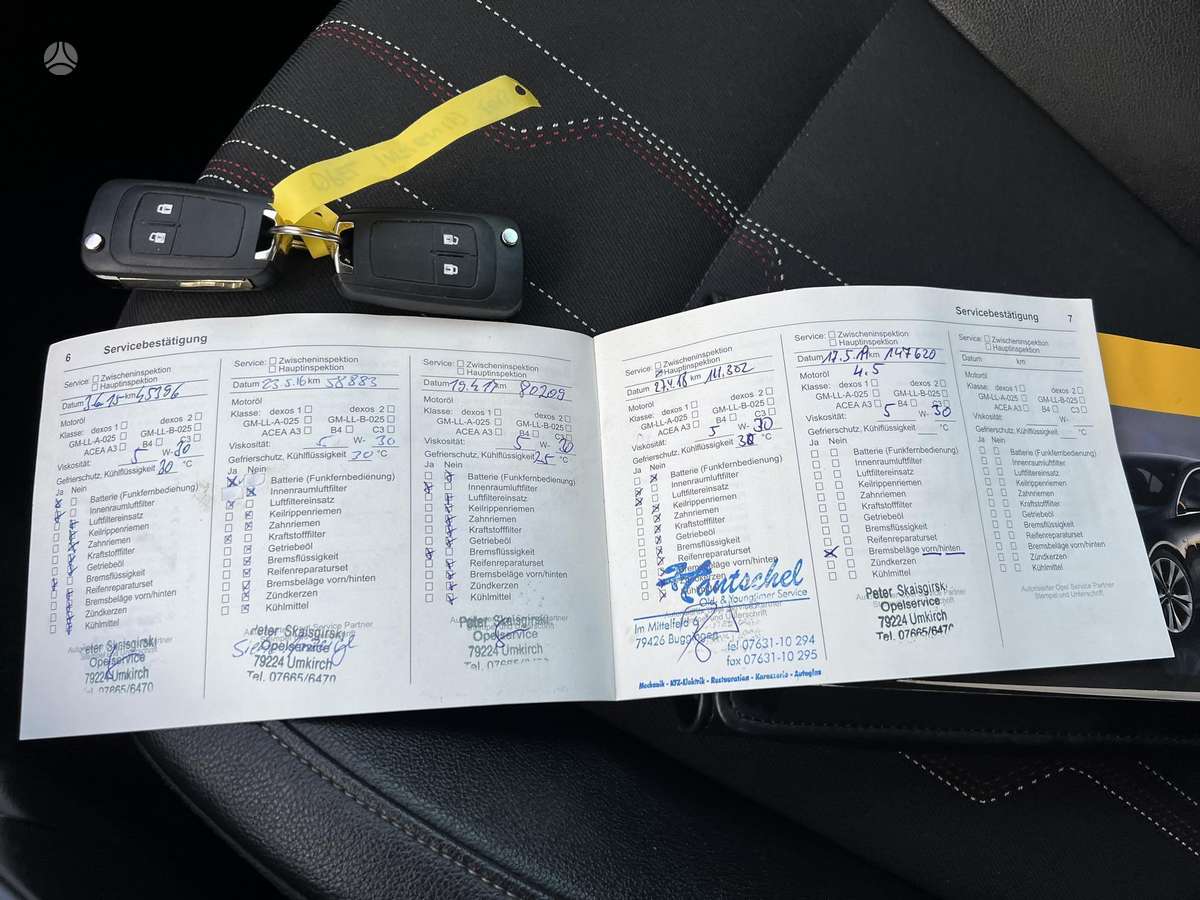 OPEL INSIGNIA
6 Servicebestätigung
Service: Zwischeninspektion
Hauptinspektion
Datum 3.6.15 km 45396
Motoröl
Klasse: dexos 1 dexos 2
GM-LL-A-025 GM-LL-B-025
ACEA A3 B4 C3
Viskosität: 5 W- 30
Gefrierschutz, Kühlflüssigkeit 30 °C
Ja Nein
Batterie (Funkfernbedienung)
Innenraumluftfilter
Luftfiltereinsatz
Keilrippenriemen
Zahnriemen
Kraftstofffilter
Getriebeöl
Bremsflüssigkeit
Reifenreparaturset
Bremsbeläge vorn/hinten
Zündkerzen
Kühlmittel
Peter Skaisgirski
Opelservice
79224 Umkirch
Tel. 07665/6470
Service: Zwischeninspektion
Hauptinspektion
Datum 23.5.16 km 58883
Motoröl
Klasse: dexos 1 dexos 2
GM-LL-A-025 GM-LL-B-025
ACEA A3 B4 C3
Viskosität: 5 W- 30
Gefrierschutz, Kühlflüssigkeit 30 °C
Ja Nein
Batterie (Funkfernbedienung)
Innenraumluftfilter
Luftfiltereinsatz
Keilrippenriemen
Zahnriemen
Kraftstofffilter
Getriebeöl
Bremsflüssigkeit
Reifenreparaturset
Bremsbeläge vorn/hinten
Zündkerzen
Kühlmittel
Peter Skaisgirski
Opelservice
79224 Umkirch
Tel. 07665/6470
Service: Zwischeninspektion
Hauptinspektion
Datum 19.4.17 km 80209
Motoröl
Klasse: dexos 1 dexos 2
GM-LL-A-025 GM-LL-B-025
ACEA A3 B4 C3
Viskosität: 5 W- 30
Gefrierschutz, Kühlflüssigkeit 25 °C
Ja Nein
Batterie (Funkfernbedienung)
Innenraumluftfilter
Luftfiltereinsatz
Keilrippenriemen
Zahnriemen
Kraftstofffilter
Getriebeöl
Bremsflüssigkeit
Reifenreparaturset
Bremsbeläge vorn/hinten
Zündkerzen
Kühlmittel
Peter Skaisgirski
Opelservice
79224 Umkirch
Servicebestätigung 7
Service: Zwischeninspektion
Hauptinspektion
Datum 27.4.18 km 111.302
Motoröl
Klasse: dexos 1 dexos 2
GM-LL-A-025 GM-LL-B-025
ACEA A3 B4 C3
Viskosität: 5 W- 30
Gefrierschutz, Kühlflüssigkeit 30 °C
Ja Nein
Batterie (Funkfernbedienung)
Innenraumluftfilter
Luftfiltereinsatz
Keilrippenriemen
Zahnriemen
Kraftstofffilter
Getriebeöl
Bremsflüssigkeit
Reifenreparaturset
Bremsbeläge vorn/hinten
Hantschel
Old- & Youngtimer Service
Im Mittelfeld 6
79426 Buggingen
tel 07631-10 294
fax 07631-10 295
Mechanik - KFZ-Elektrik - Restauration - Karosserie - Autoglas
Service: Zwischeninspektion
Hauptinspektion
Datum 17.5.19 km 147620
Motoröl 4.5
Klasse: dexos 1 dexos 2
GM-LL-A-025 GM-LL-B-025
ACEA A3 B4 C3
Viskosität: 5 W- 30
Gefrierschutz, Kühlflüssigkeit °C
Ja Nein
Batterie (Funkfernbedienung)
Innenraumluftfilter
Luftfiltereinsatz
Keilrippenriemen
Zahnriemen
Kraftstofffilter
Getriebeöl
Bremsflüssigkeit
Reifenreparaturset
Bremsbeläge vorn/hinten
Zündkerzen
Kühlmittel
Peter Skaisgirski
Opelservice
79224 Umkirch
Tel. 07665/6470
Service: Zwischeninspektion
Hauptinspektion
Datum km
Motoröl
Klasse: dexos 1 dexos 2
GM-LL-A-025 GM-LL-B-025
ACEA A3 B4 C3
Viskosität: W-
Gefrierschutz, Kühlflüssigkeit °C
Ja Nein
Batterie (Funkfernbedienung)
Innenraumluftfilter
Luftfiltereinsatz
Keilrippenriemen
Zahnriemen
Kraftstofffilter
Getriebeöl
Bremsflüssigkeit
Reifenreparaturset
Bremsbeläge vorn/hinten
Zündkerzen
Kühlmittel
Autorisierter Opel Service Partner
Stempel und Unterschrift